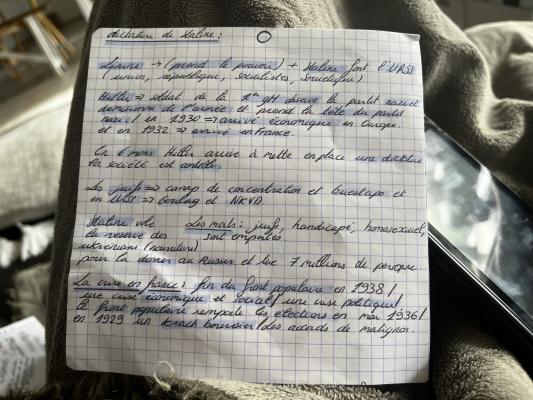 dictature de Staline :
Lénine → (prend le pouvoir) + Staline font l'URSS
(union, république, socialistes, soviétique)
Hitler ⇒ soldat de la 1er gM devore le partit nazi et
démissionne de l'armée et prend la tête du partit
nazi / en 1930 ⇒ arrivé économique en Europe
et en 1932 ⇒ arrivé en France.
En 6 mois Hitler arrive à mettre en place une dictature
la société est contrôlé
Les juifs ⇒ camp de concentration et Guestapo et
en URSS ⇒ Goulag et NKVD.
Staline vole Les morts : juifs, handicapé, homosexuel,
la reserve des sont
ukrainiens (nourriture)
pour la donner au Russes et tue 7 millions de personne.
La crise en france : fin du front populaire en 1938 /
une crise économique et social / une crise politique /
le front populaire remporte les élections en mai 1936 /
en 1929 un krach boursier / des accords de matignon.